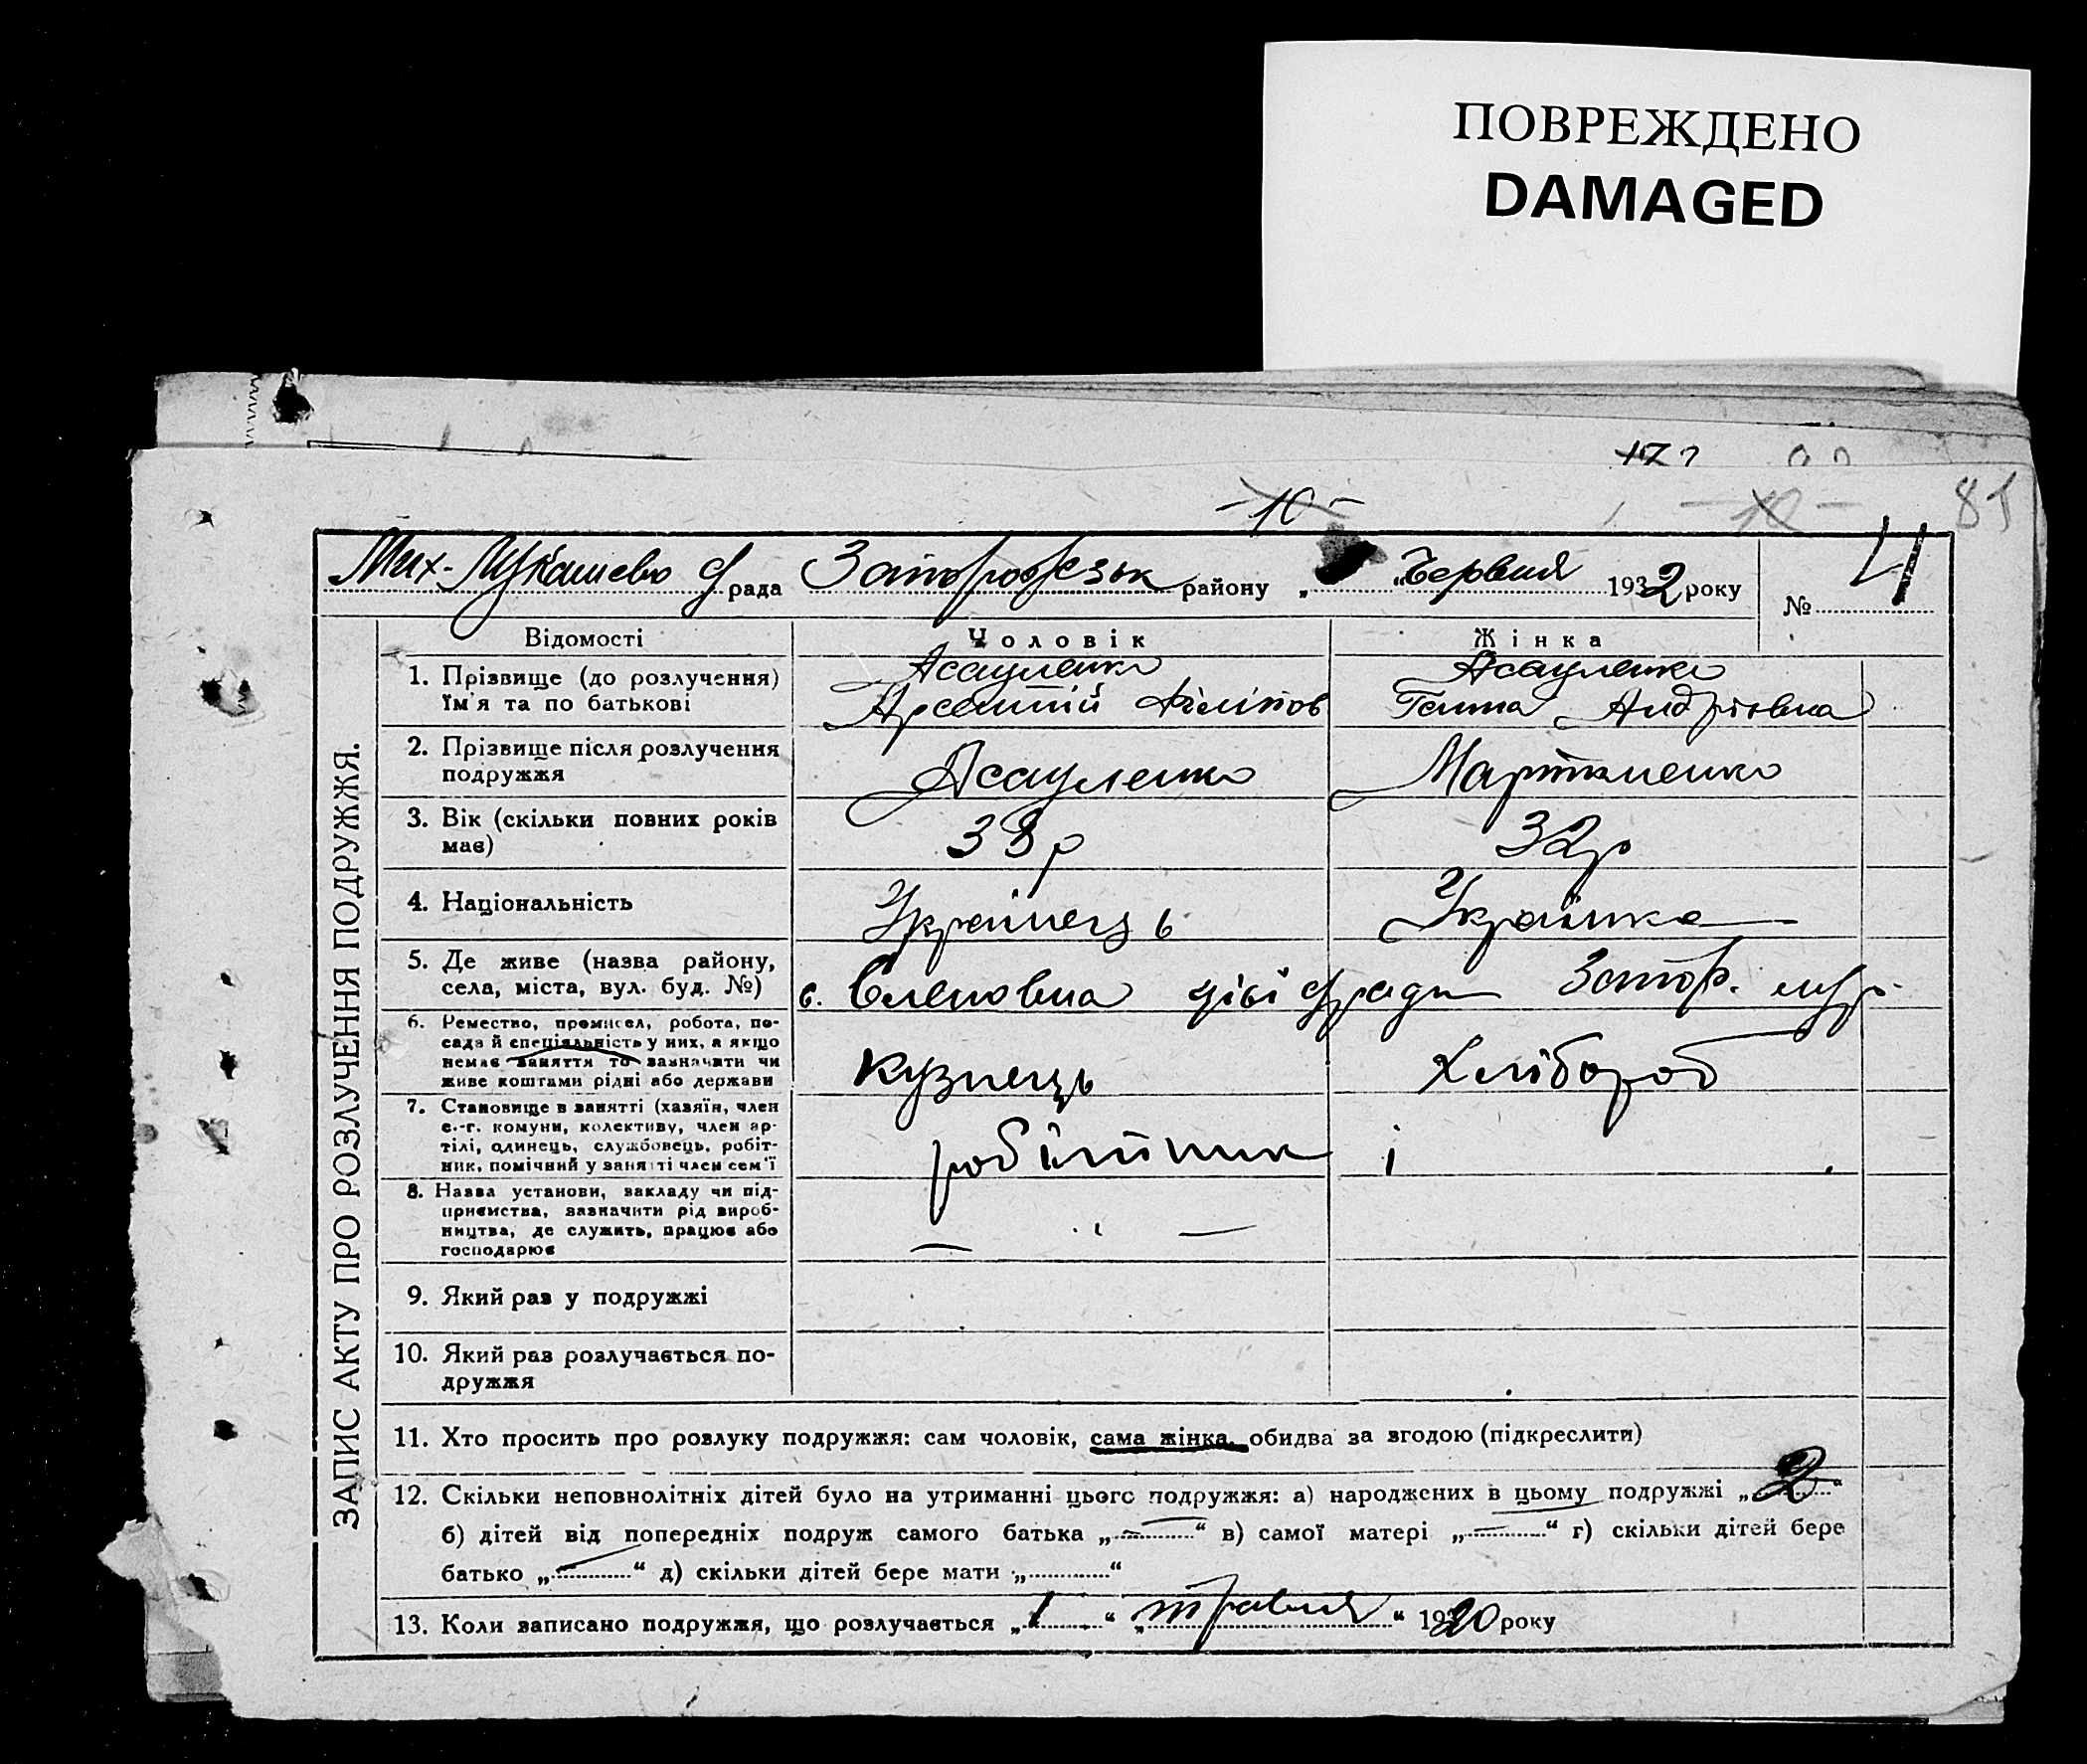 ПОВРЕЖДЕНО
DAMAGED
17
10
10
81
Мих-Лукашево с/рада Запорожськ району „ „Червня 1932 року № 4
ЗАПИС АКТУ ПРО РОЗЛУЧЕННЯ ПОДРУЖЖЯ.
Відомості Чоловік Жінка
1. Прізвище (до розлучення) їм'я та по батькові
Асауленко
Арсентій Філіпов
Асауленко
Ганна Андріївна
2. Прізвище після розлучення подружжя
Асауленко
Мартиненко
3. Вік (скільки повних років має)
38 р
32 р
4. Національність
Українець
Українка
5. Де живе (назва району, села, міста, вул. буд. №)
с. Оленовка цієї с/ради Запор.
6. Ремество, промисел, робота, посада й спеціяльність у них, а якщо немає заняття то зазначити чи живе коштами рідні або держави
кузнець
Хлібороб
7. Становище в занятті (хазяїн, член с.-г. комуни, колективу, член артілі, одинець, службовець, робітник, помічний у занятті член сем'ї
робітник
8. Назва установи, закладу чи підприємства, зазначити рід виробництва, де служить, працює або господарює
9. Який раз у подружжі
10. Який раз розлучається подружжя
11. Хто просить про розлуку подружжя: сам чоловік, сама жінка, обидва за згодою (підкреслити)
12. Скільки неповнолітніх дітей було на утриманні цього подружжя: а) народжених в цьому подружжі „2“
б) дітей від попередніх подруж самого батька „—“ в) самої матері „—“ г) скільки дітей бере
батько „—“ д) скільки дітей бере мати „.............“
13. Коли записано подружжя, що розлучається „1“ „травня“ 1920 року